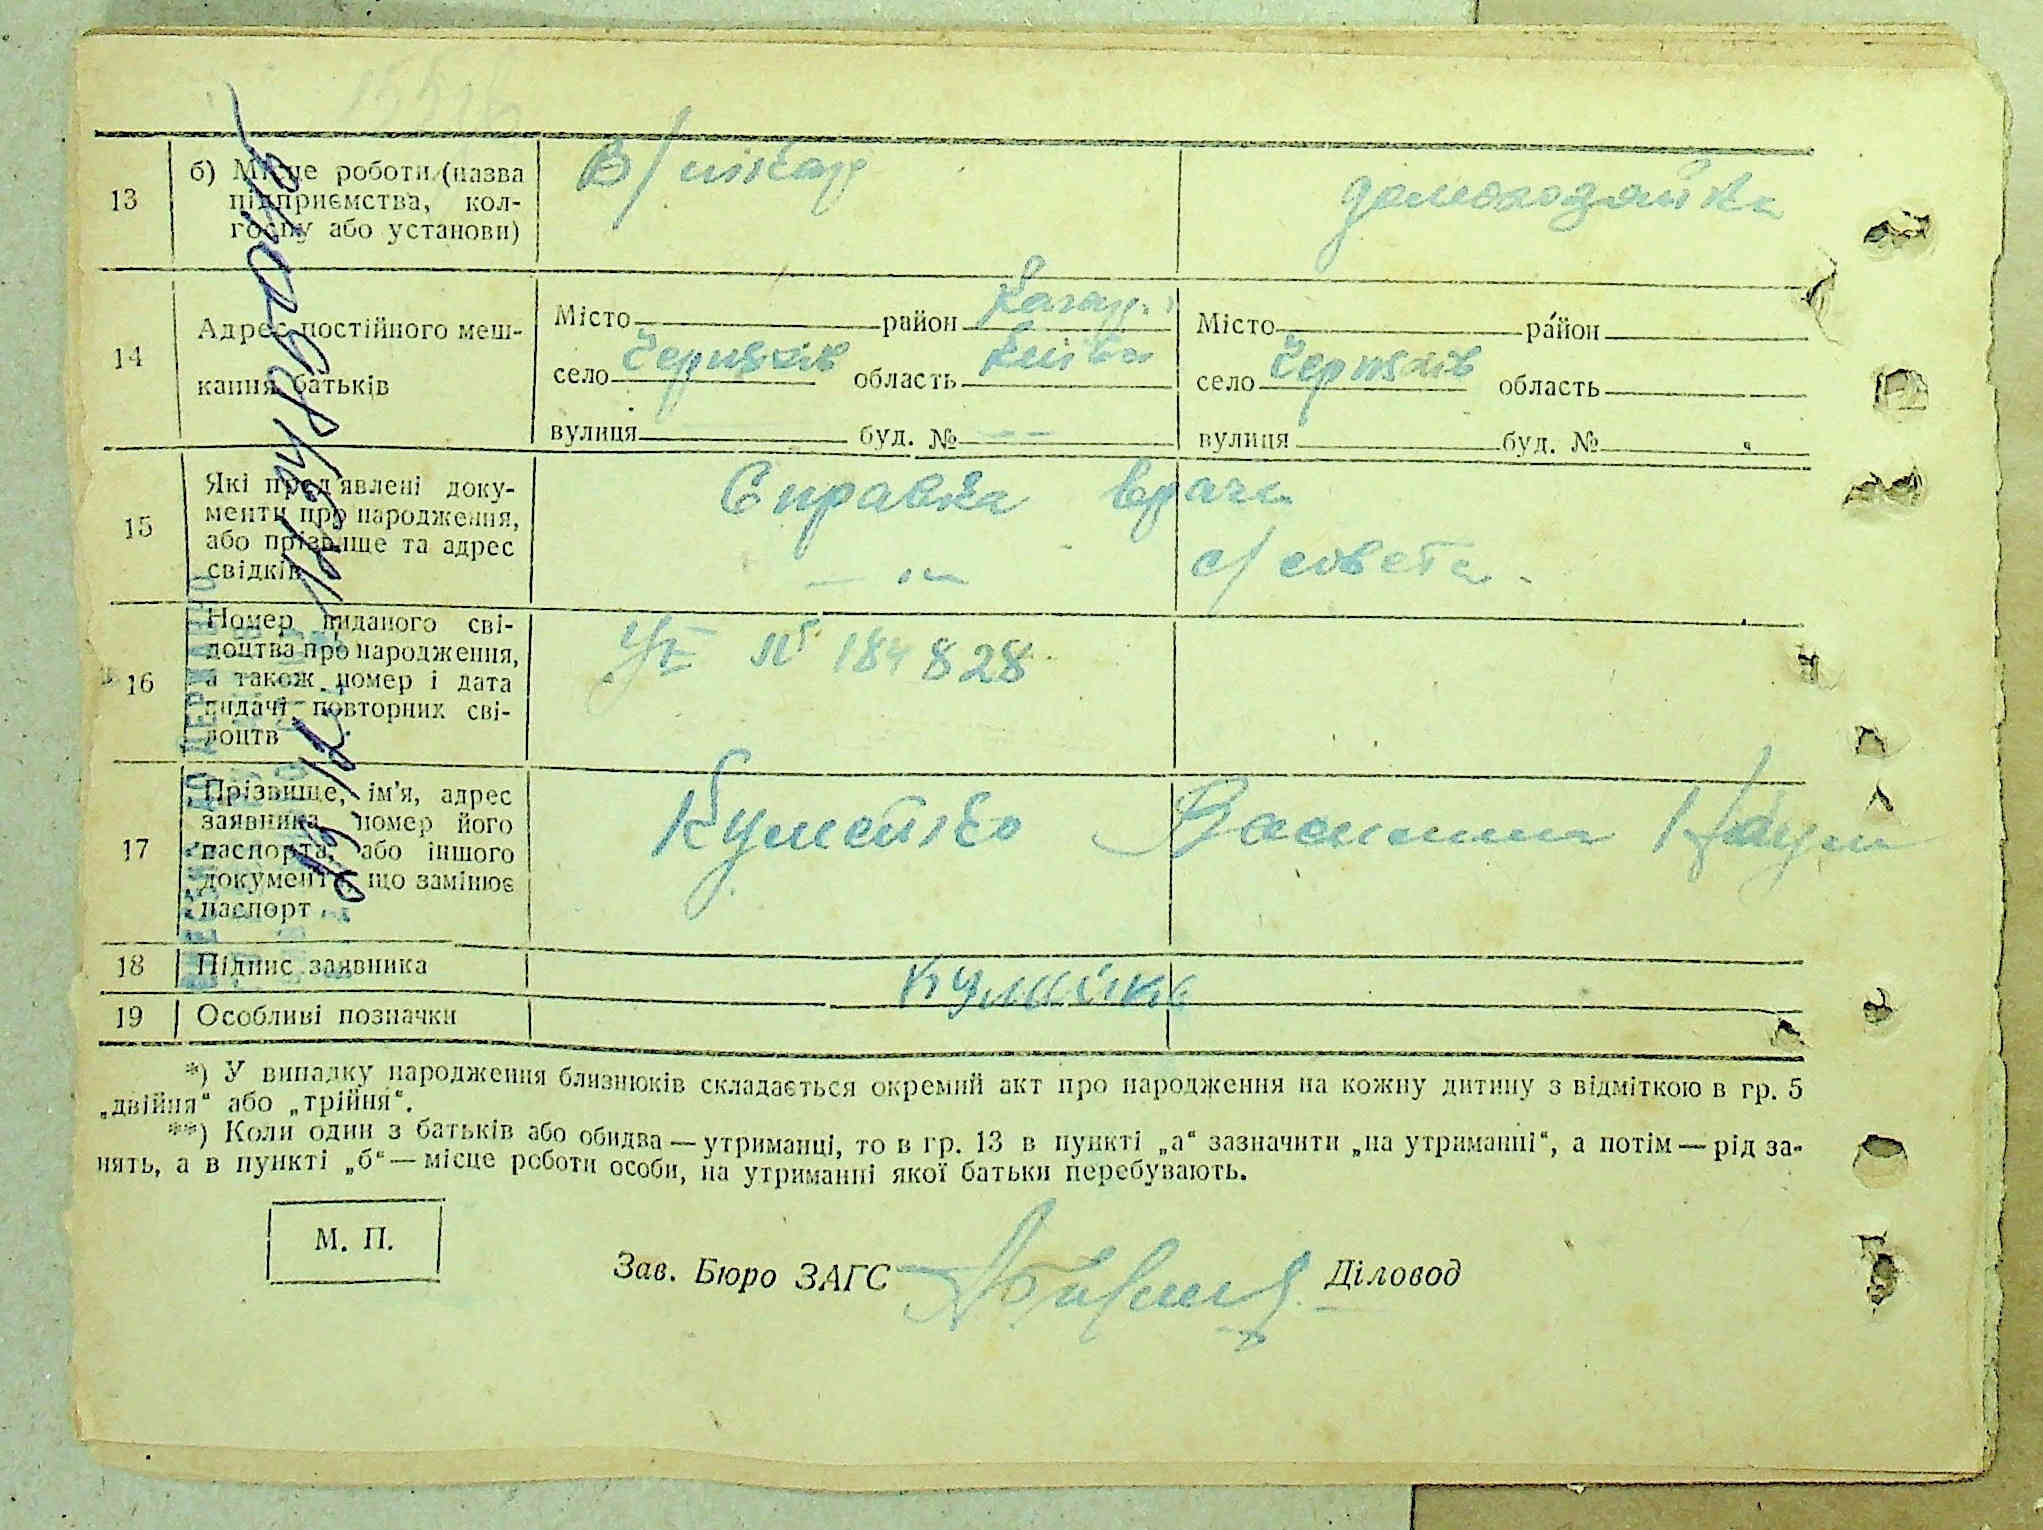 13
б) Місце роботи (назва
підприємства, кол-
госпу або установи)
домохозяйка
14
Адрес постійного меш-
кання батьків
Місто район Кагар.
село область Київ
вулиця буд. №
Місто район
село область
вулиця буд. №
15
Які пред'явлені доку-
менти про народження,
або прізвище та адрес
свідків
Справка врача
с/совета
16
Номер виданого сві-
доцтва про народження,
а також номер і дата
видачі повторних сві-
доцтв
№ 184828
17
Прізвище, ім'я, адрес
заявника, номер його
паспорта, або іншого
документа, що замінює
паспорт
Кумейко Наум
18
Підпис заявника
Кумейко
19
Особливі позначки
*) У випадку народження близнюків складається окремий акт про народження на кожну дитину з відміткою в гр. 5
„двійня“ або „трійня“.
**) Коли один з батьків або обидва — утриманці, то в гр. 13 в пункті „а“ зазначити „на утриманні“, а потім — рід за-
нять, а в пункті „б“ — місце роботи особи, на утриманні якої батьки перебувають.
М. П.
Зав. Бюро ЗАГС Діловод